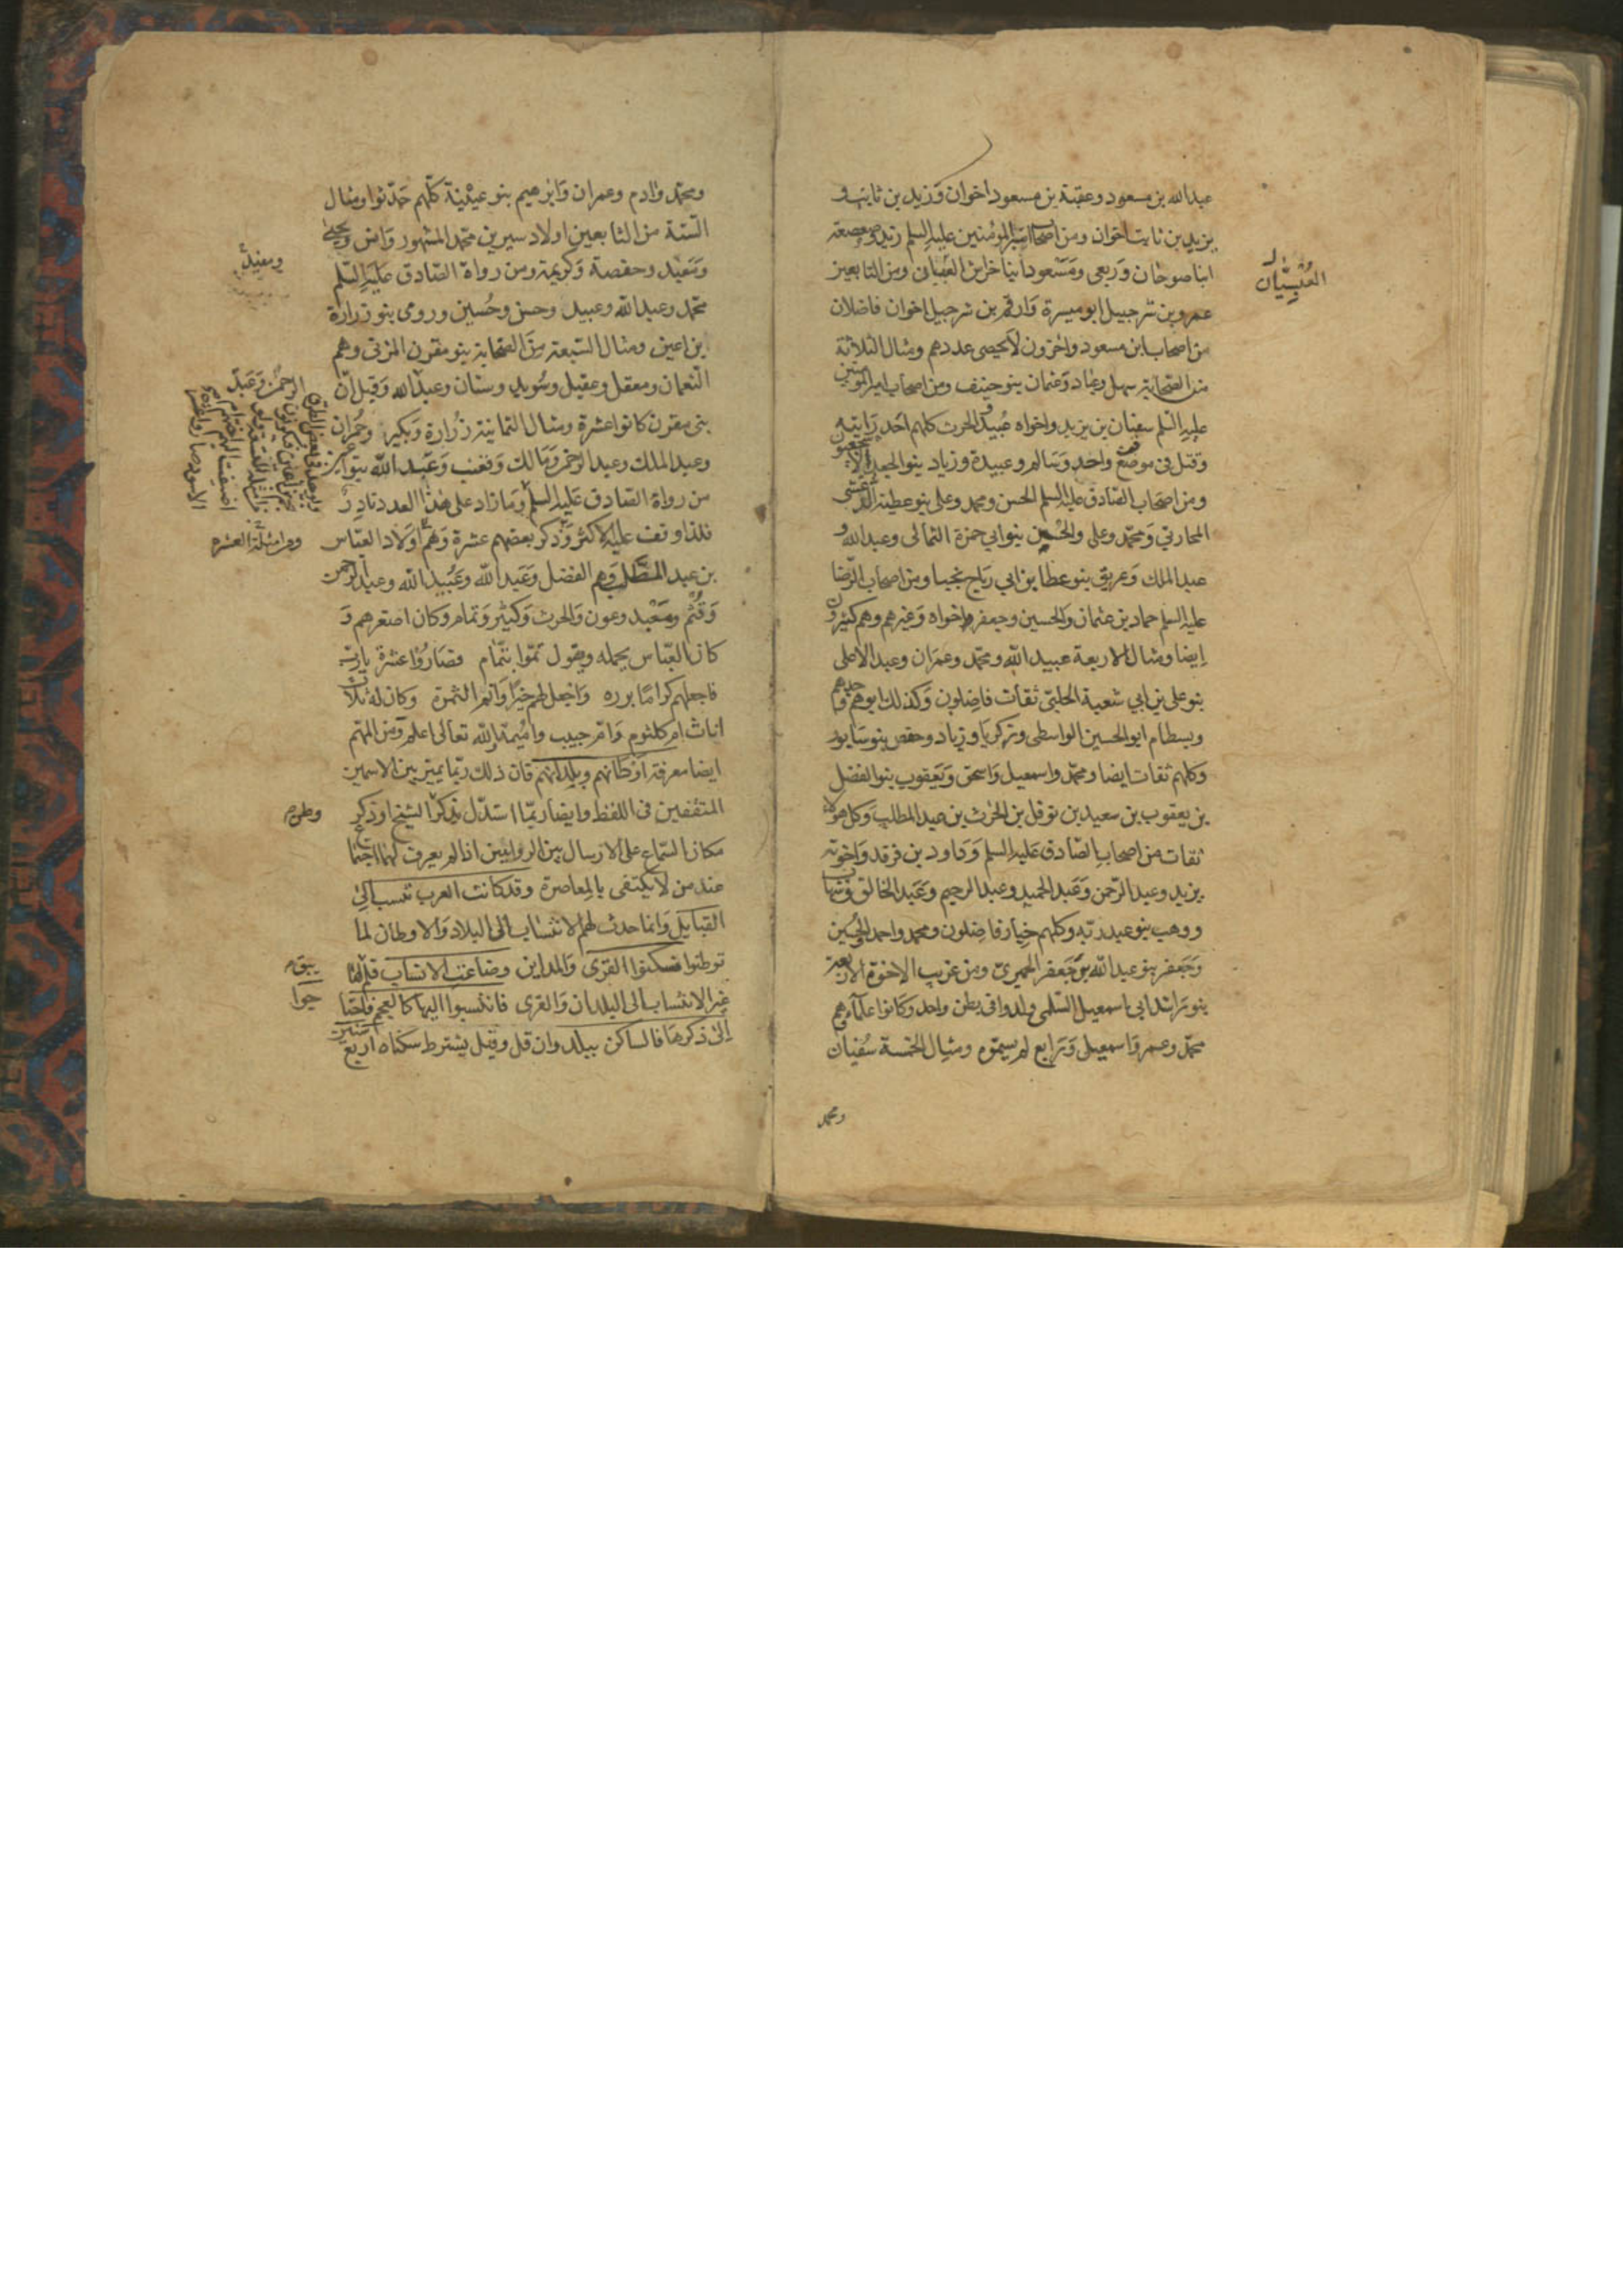 عبدالله بن مسعود وعتبة بن مسعود اخوان وزيد بن ثابت و
يزيد بن ثابت اخوان ومن اصحاب امير المؤمنين عليه السلم زيد وصعصعة
ابنا صوحان وربعي ومسعود ابنا خراش العبسيان ومن التابعين
عمرو بن شرجبيل ابو ميسرة وارقم بن شرجبيل اخوان فاضلان
من اصحاب ابن مسعود واخرون لا يحصى عددهم ومثال الثلاثة
من الصحابة سهل وعباد وعثمان بنو حنيف ومن اصحاب امير المؤمنين
عليه السلم سفيان بن يزيد واخواه عبيد والحرث كلهم اخذ رايته
وقتل في موضع واحد وسالم وعبيدة وزياد بنو الجعد الاشجعيون
ومن اصحاب الصادق عليه السلم الحسن ومحمد وعلى بنو عطية الدغشى
المحاربي ومحمد وعلى والحسين بنو ابي حمزة الثمالى وعبدالله و
عبدالملك وعريق بنو عطا بن ابي رياح نجبا ومن اصحاب الرضا
عليه السلم حماد بن عثمان والحسين وجعفر اخواه وغيرهم وهم كثيرون
ايضا ومثال الاربعة عبيدالله ومحمد وعمران وعبدالاعلى
بنو على بن ابي شعبة الحلبي ثقات فاضلون وكذلك ابوهم وجدهم
وبسطام ابو الحسين الواسطى وزكريا وزياد وحفص بنو سابور
وكلهم ثقات ايضا ومحمد واسمعيل واسحق ويعقوب بنو الفضل
بن يعقوب بن سعيد بن نوفل بن الحرث بن عبدالمطلب وكل هولاء
ثقات من اصحاب الصادق عليه السلم وداود بن فرقد واخوته
يزيد وعبدالرحمن وعبدالحميد وعبدالرحيم وعبدالخالق وشهاب
ووهب بنو عبد ربه وكلهم خيار فاضلون ومحمد واحمد والحسين
وجعفر بنو عبدالله بن جعفر الحميري ومن غريب الاخوة الاربعة
بنو راشد ابي اسمعيل السلمى ولدوا في بطن واحد وكانوا علماء وهم
محمد وعمر واسمعيل ورابع لم يسموه ومثال الخمسة سفيان
ومحمد
العبسيان
ومحمد وادم وعمران وابرهيم بنو عيينة كلهم حدثوا ومثال
الستة من التابعين اولاد سيرين محمد المشهور وانس ويحيى
ومعبد وحفصة وكريمة ومن رواة الصادق عليه السلم
محمد وعبدالله وعبيد وحسن وحسين ورومى بنو زرارة
بن اعين ومثال السبعة من الصحابة بنو مقرن المزنى وهم
النعمان ومعقل وعقيل وسويد وسنان وعبدالله وقيل ان
بنى مقرن كانوا عشرة ومثال الثمانية زرارة وبكير وحمران
وعبدالملك وعبدالرحمن ومالك وقعنب وعبدالله بنو اعين
من رواة الصادق عليه السلم وما زاد على هذا العدد نادر
فلذا وقف عليه الاكثر وذكر بعضهم عشرة وهم اولاد العباس
بن عبد المطلب وهم الفضل وعبدالله وعبيدالله وعبدالرحمن
وقثم ومعبد وعون والحرث وكثير وتمام وكان اصغرهم و
كان العباس يحمله ويقول تموا بتمام فصاروا عشرة يارب
فاجعلهم كراما برره واجعل لهم خيرا وانم الثمرة وكان له ثلاث
اناث ام كلثوم وام حبيب واميمة والله تعالى اعلم ومن المهم
ايضا معرفة اوطانهم وبلدانهم فان ذلك ربما يميز بين الاسمين
المتفقين في اللفظ وايضا ربما استدل بذكر الشيخ او ذكر
مكان السماع على الارسال بين الراويين اذا لم يعرف لهما اجتماع
عند من لا يكتفى بالمعاصرة وقد كانت العرب تنسب الى
القبايل وانما حدث لهم الانتساب الى البلاد والاوطان لما
توطنوا فسكنوا القرى والمداين وضاعت الانساب فلم لها
غير الانتساب الى البلدان والقرى فانتسبوا اليها كالعجم فاحتا
الى ذكرها فالساكن ببلد وان قل وقيل يشترط سكناه اربع سنين
ومن امثلة العشرة
يبق
جوا